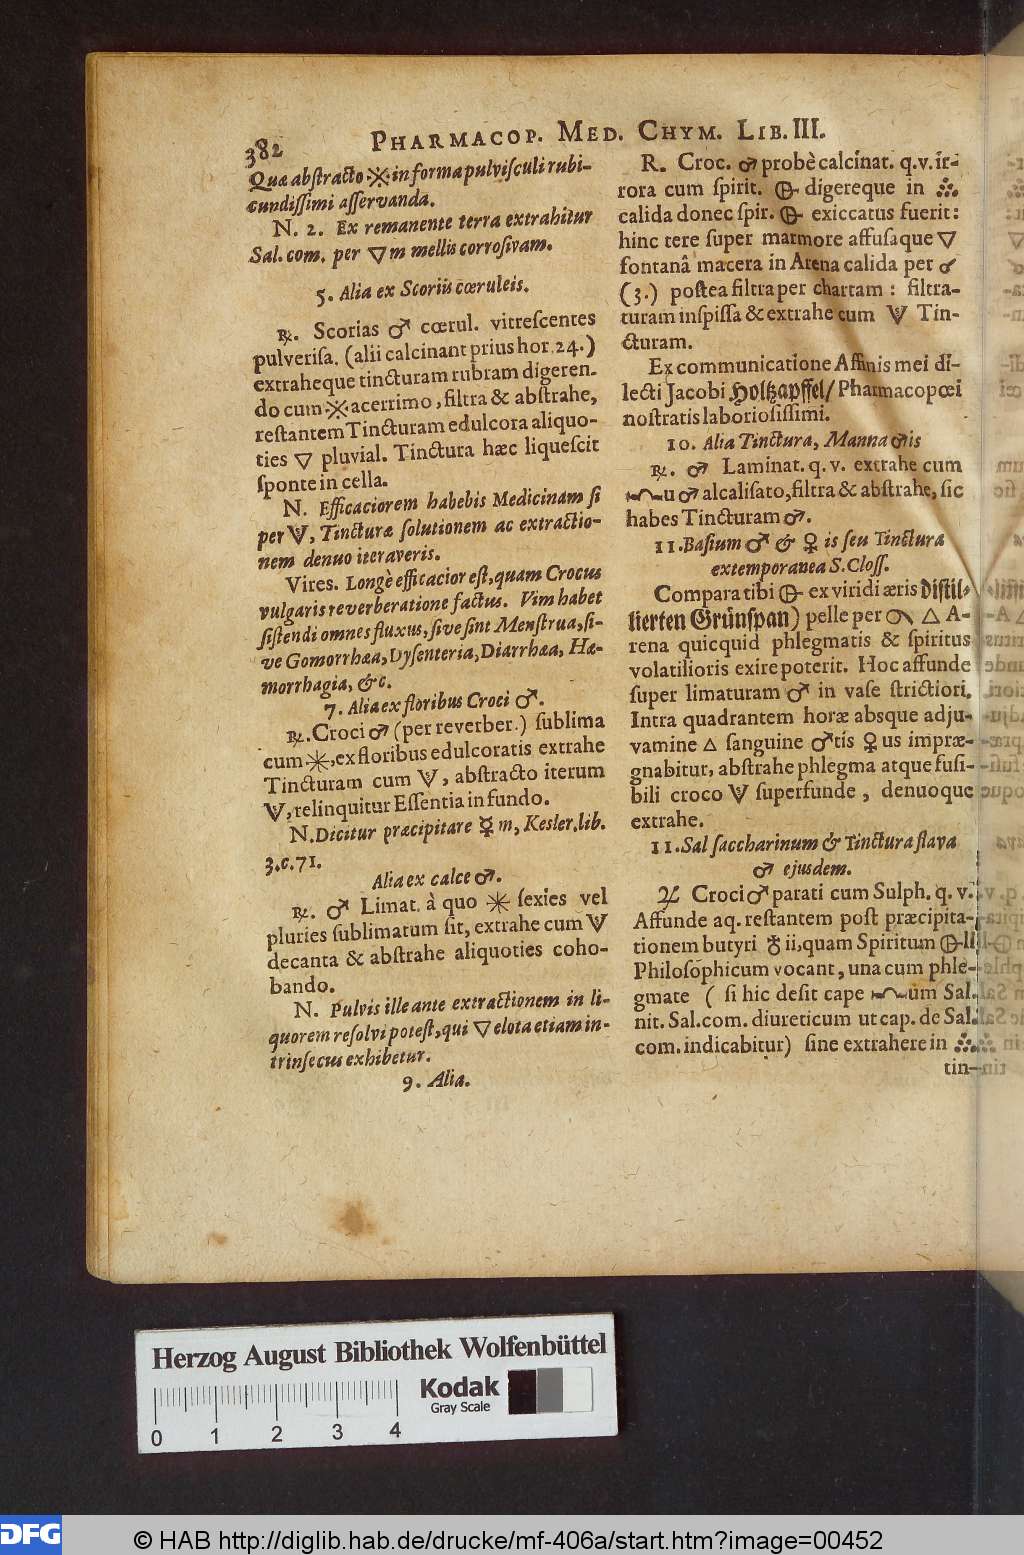 382
PHARMACOP. MED. CHYM. LIB. III.
Quæ abſtracto ※ in forma pulviſculi rubi-
cundiſſimi aſſervanda.
N. 2. Ex remanente terra extrahitur
Sal. com. per 🜄m mellis corroſivam.
5. Alia ex Scoriis cœruleis.
℞. Scorias ♂ cœrul. vitreſcentes
pulveriſa. (alii calcinant prius hor. 24.)
extraheque tincturam rubram digeren-
do cum ※ acerrimo, filtra & abſtrahe,
reſtantem Tincturam edulcora aliquo-
ties 🜄 pluvial. Tinctura hæc liqueſcit
ſponte in cella.
N. Efficaciorem habebis Medicinam ſi
per 🜈, Tincturæ ſolutionem ac extractio-
nem denuo iteraveris.
Vires. Longè efficacior eſt, quam Crocus
vulgaris reverberatione factus. Vim habet
ſiſtendi omnes fluxus, ſive ſint Menſtrua, ſi-
ve Gomorrhæa, Dyſenteria, Diarrhæa, Hæ-
morrhagia, &c.
7. Alia ex floribus Croci ♂.
℞. Croci ♂ (per reverber.) ſublima
cum ✳, ex floribus edulcoratis extrahe
Tincturam cum 🜈, abſtracto iterum
🜈, relinquitur Eſſentia in fundo.
N. Dicitur præcipitare ☿m, Kesler. lib.
3. c. 71.
Alia ex calce ♂.
℞. ♂ Limat. à quo ✳ ſexies vel
pluries ſublimatum ſit, extrahe cum 🜈
decanta & abſtrahe aliquoties coho-
bando.
N. Pulvis ille ante extractionem in li-
quorem reſolvi poteſt, qui 🜄 elota etiam in-
trinſecus exhibetur.
9. Alia.
R. Croc. ♂ probè calcinat. q. v. ir-
rora cum ſpirit. 🜖 digereque in ∴
calida donec ſpir. 🜖 exiccatus fuerit:
hinc tere ſuper marmore affuſaque 🜄
fontanâ macera in Arena calida per
(3.) poſtea filtra per chartam: filtra-
turam inſpiſſa & extrahe cum 🜈 Tin-
cturam.
Ex communicatione Affinis mei di-
lecti Jacobi Holtzapffel/ Pharmacopœi
noſtratis laborioſiſſimi.
10. Alia Tinctura, Manna ♂is
℞. ♂ Laminat. q. v. extrahe cum
u ♂ alcaliſato, filtra & abſtrahe, ſic
habes Tincturam ♂.
11. Baſium ♂ & ♀ is ſeu Tinctura
extemporanea S. Cloſſ.
Compara tibi 🜖 ex viridi æris Diſtil-
lierten Grünſpan) pelle per 🜂 A-
rena quicquid phlegmatis & ſpiritus
volatilioris exire poterit. Hoc affunde
ſuper limaturam ♂ in vaſe ſtrictiori.
Intra quadrantem horæ absque adju-
vamine 🜂 ſanguine ♂tis ♀us impræ-
gnabitur, abſtrahe phlegma atque fuſi-
bili croco 🜈 ſuperfunde, denuoque
extrahe.
11. Sal ſaccharinum & Tinctura flava
♂ ejusdem.
♃ Croci ♂ parati cum Sulph. q. v.
Affunde aq. reſtantem poſt præcipita-
tionem butyri ♁ii, quam Spiritum 🜖li
Philoſophicum vocant, una cum phle-
gmate (ſi hic deſit cape um Sal.
nit. Sal. com. diureticum ut cap. de Sal.
com. indicabitur) ſine extrahere in ∴
tin-
Herzog August Bibliothek Wolfenbüttel
Kodak
Gray Scale
0 1 2 3 4
DFG
© HAB http://diglib.hab.de/drucke/mf-406a/start.htm?image=00452